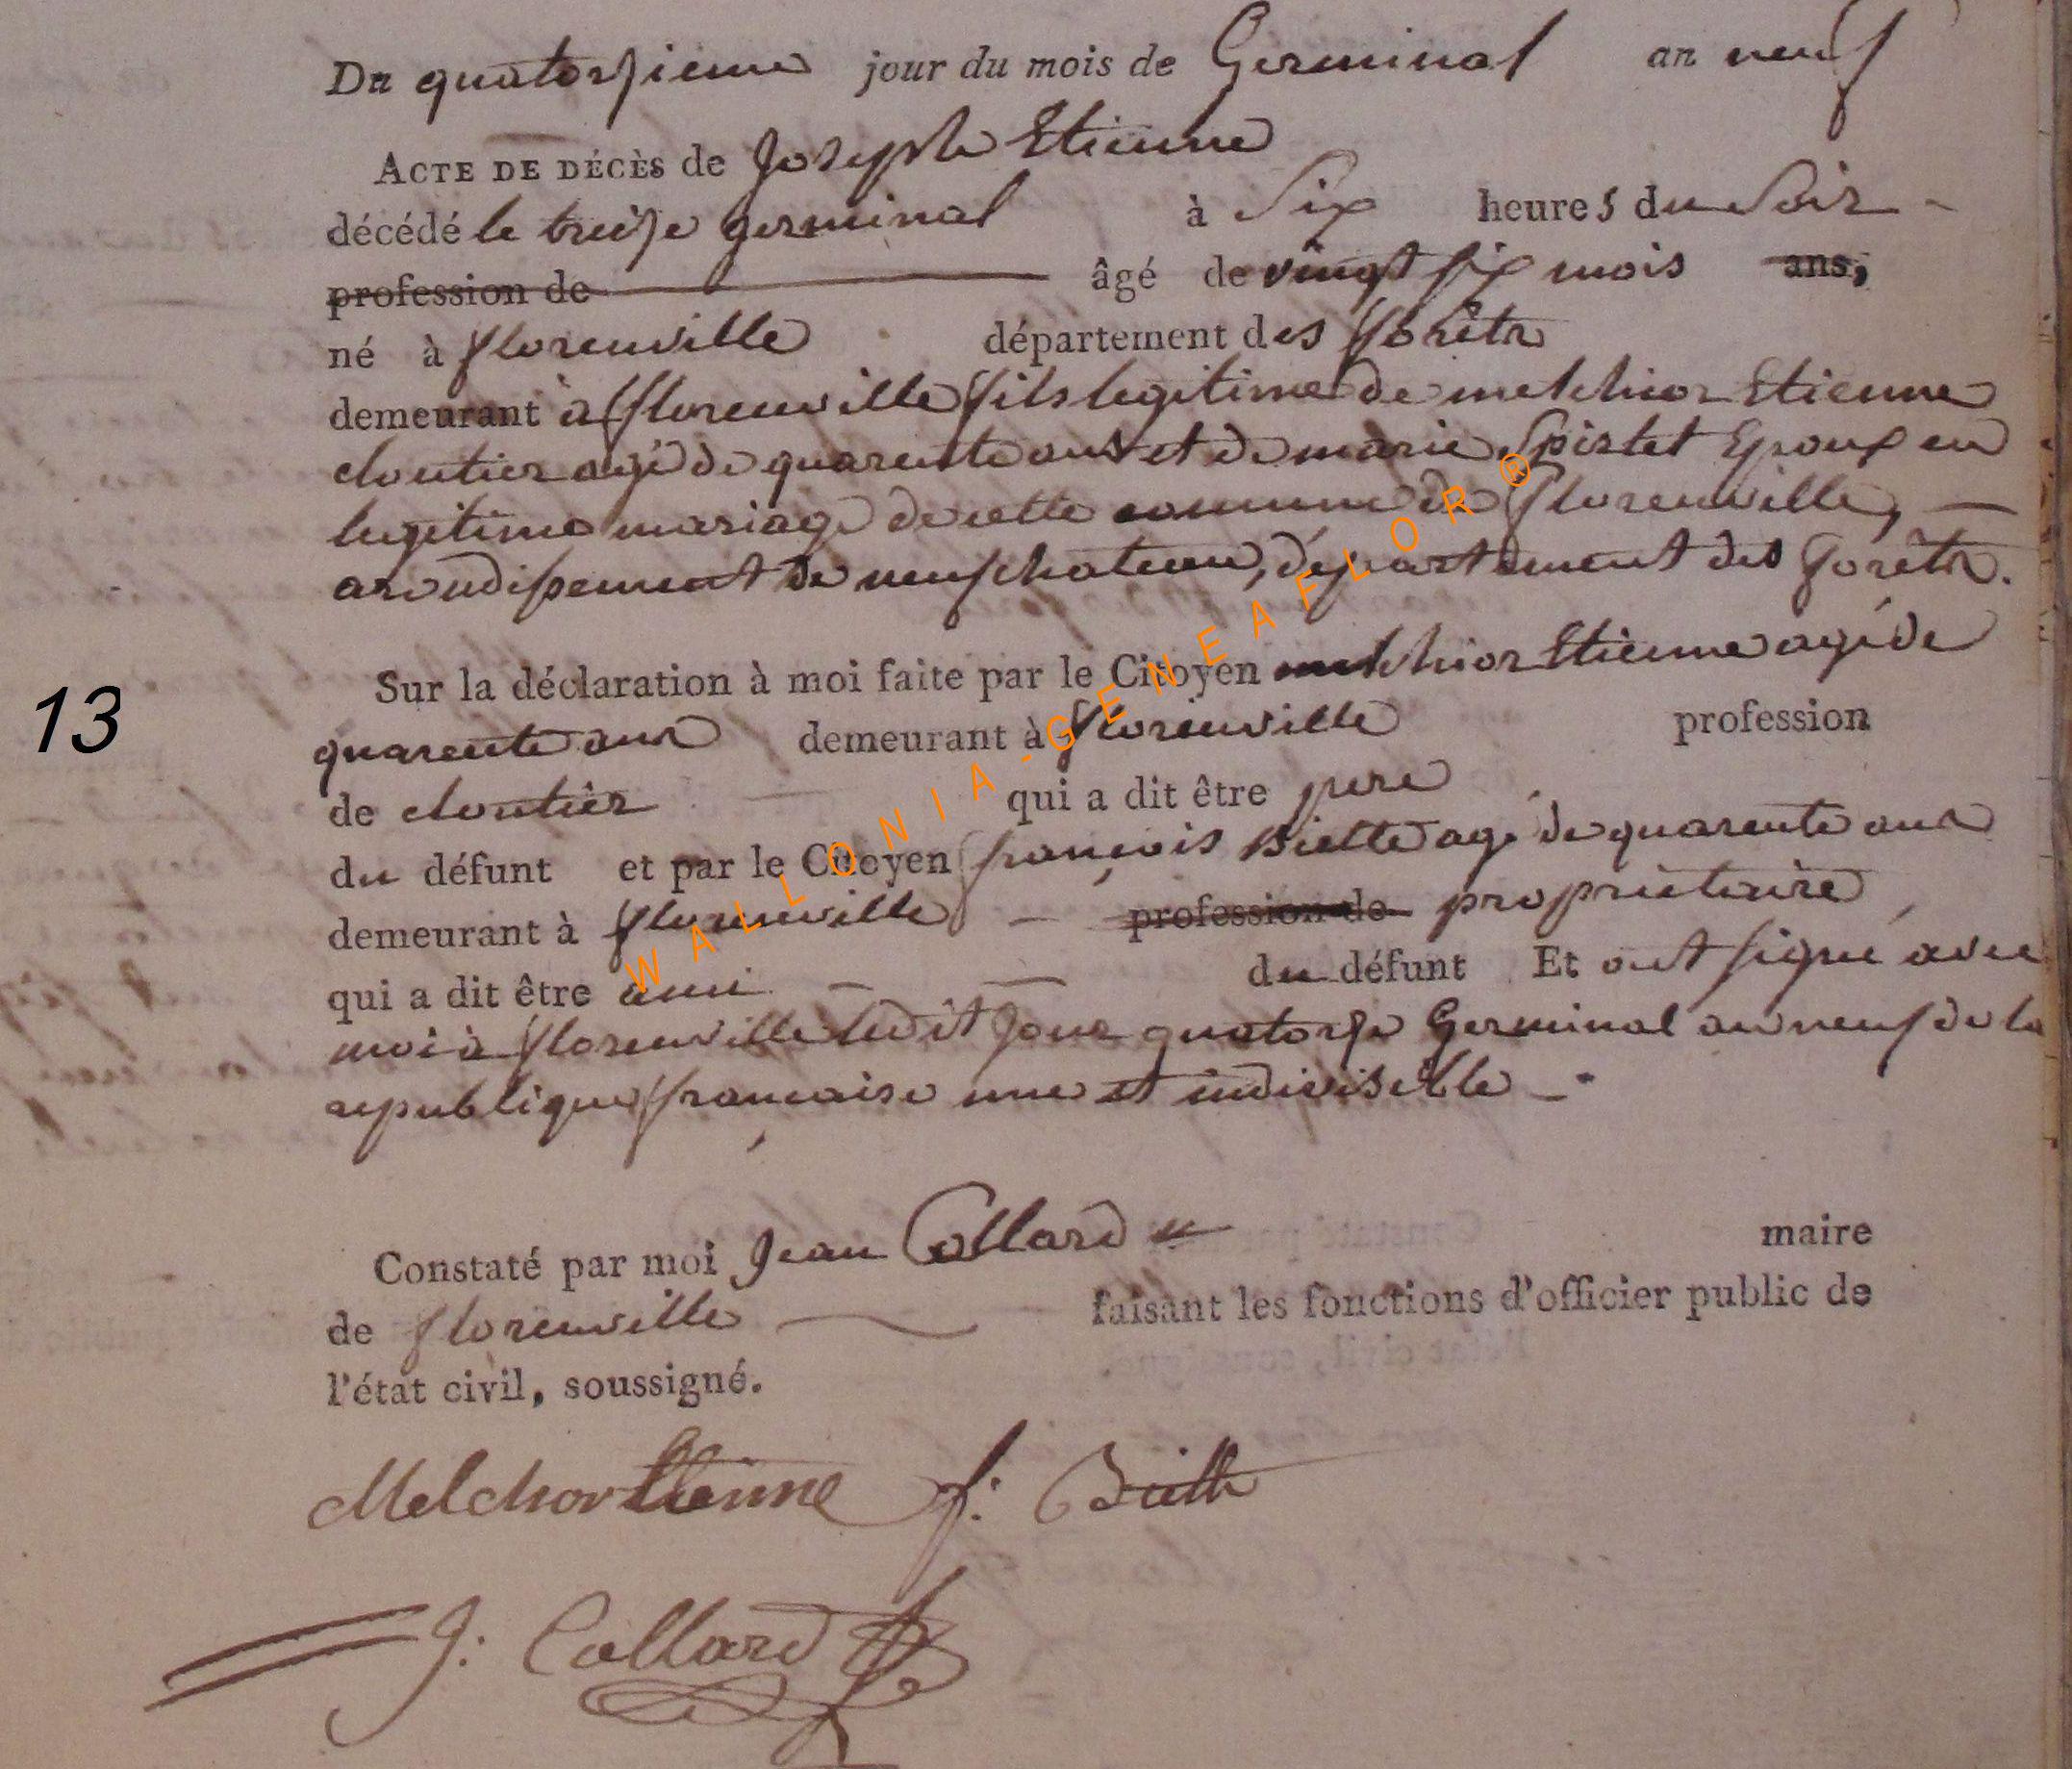 Du quatorzieme jour du mois de Germinal an neuf
ACTE DE DÉCÈS de Joseph Etienne
décédé le treize germinal à Six heures du Soir -
profession de âgé de vingt six mois ans,
né à florenville département des forêts
demeurant à florenville fils legitime de melchior Etienne
cloutier agé de quarente ans et de marie Pistet Epoux en
legitime mariage de cette commune de florenville,
arondissement de neufchateau, département des forêts.
Sur la déclaration à moi faite par le Citoyen melchior Etienne agé de
13
quarente ans demeurant à florenville profession
de cloutier qui a dit être pere
du défunt et par le Citoyen françois Biette agé de quarente ans
demeurant à florenville - profession de proprietaire
qui a dit être ami du défunt Et ont signé avec
moi à florenville ledit jour quatorze Germinal an neuf de la
republique française une et indivisible -
WALLONIA-GENEAFLOR®
Constaté par moi Jean Collard maire
de florenville faisant les fonctions d'officier public de
l'état civil, soussigné.
Melchor Etienne f: Biette
J: Collard